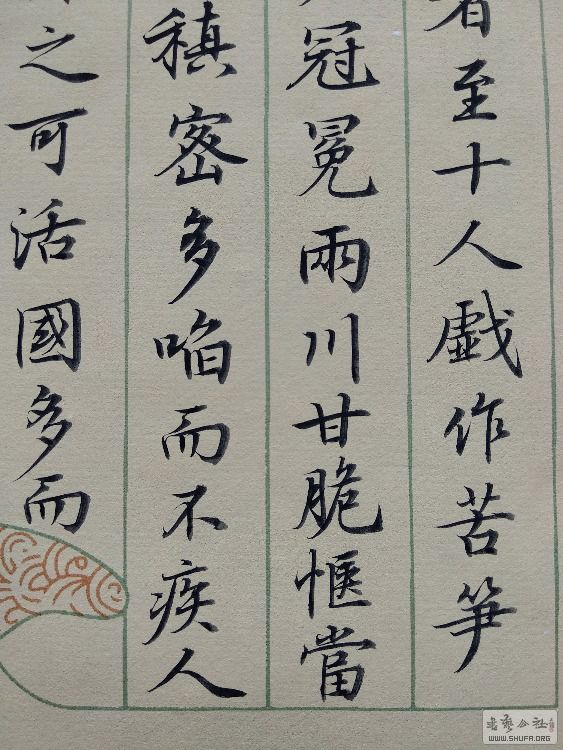 至十人戲作苦笋
冠冕兩川甘脆愜當
稹密多啗而不疾人
之可活國多而
書藝公社
WWW.SHUFA.ORG